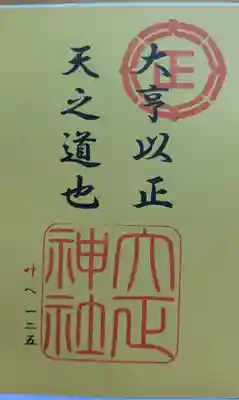 正
大亨以正
天之道也
大正
神社
叶へ一二五